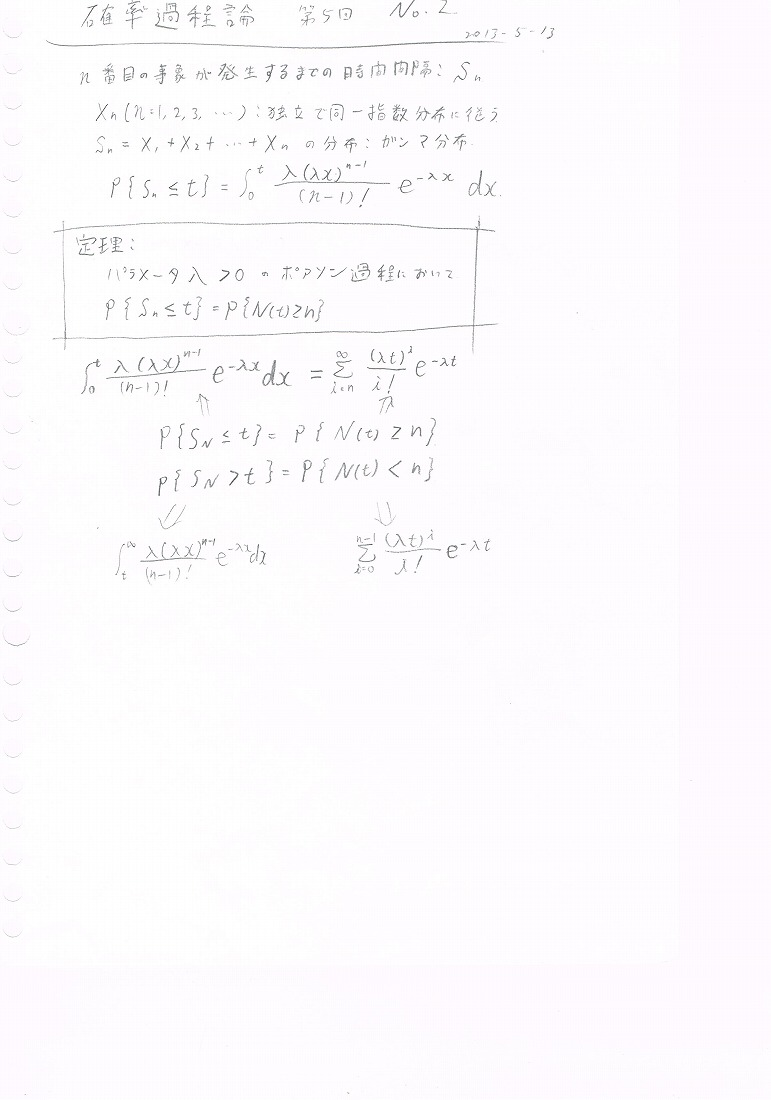 確率過程論 第5回 No.2
2013-5-13
n番目の事象が発生するまでの時間間隔: Sn
Xn(n=1,2,3,…):独立で同一指数分布に従う
Sn = X1+X2+…+Xnの分布:ガンマ分布.
P{Sn≤t} = ∫_0^t λ(λx)^{n-1}/(n-1)! e^{-λx} dx.
定理:
パラメータλ>0のポアソン過程において
P{Sn≤t}=P{N(t)≥n}
∫_0^t λ(λx)^{n-1}/(n-1)! e^{-λx}dx = Σ_{i=n}^∞ (λt)^i/i! e^{-λt}
⇑ ⇑
P{S_N≤t}= P{N(t)≥n}
P{S_N>t}=P{N(t)<n}
⇓ ⇓
∫_t^∞ λ(λx)^{n-1}/(n-1)! e^{-λx}dx Σ_{i=0}^{n-1} (λt)^i/i! e^{-λt}